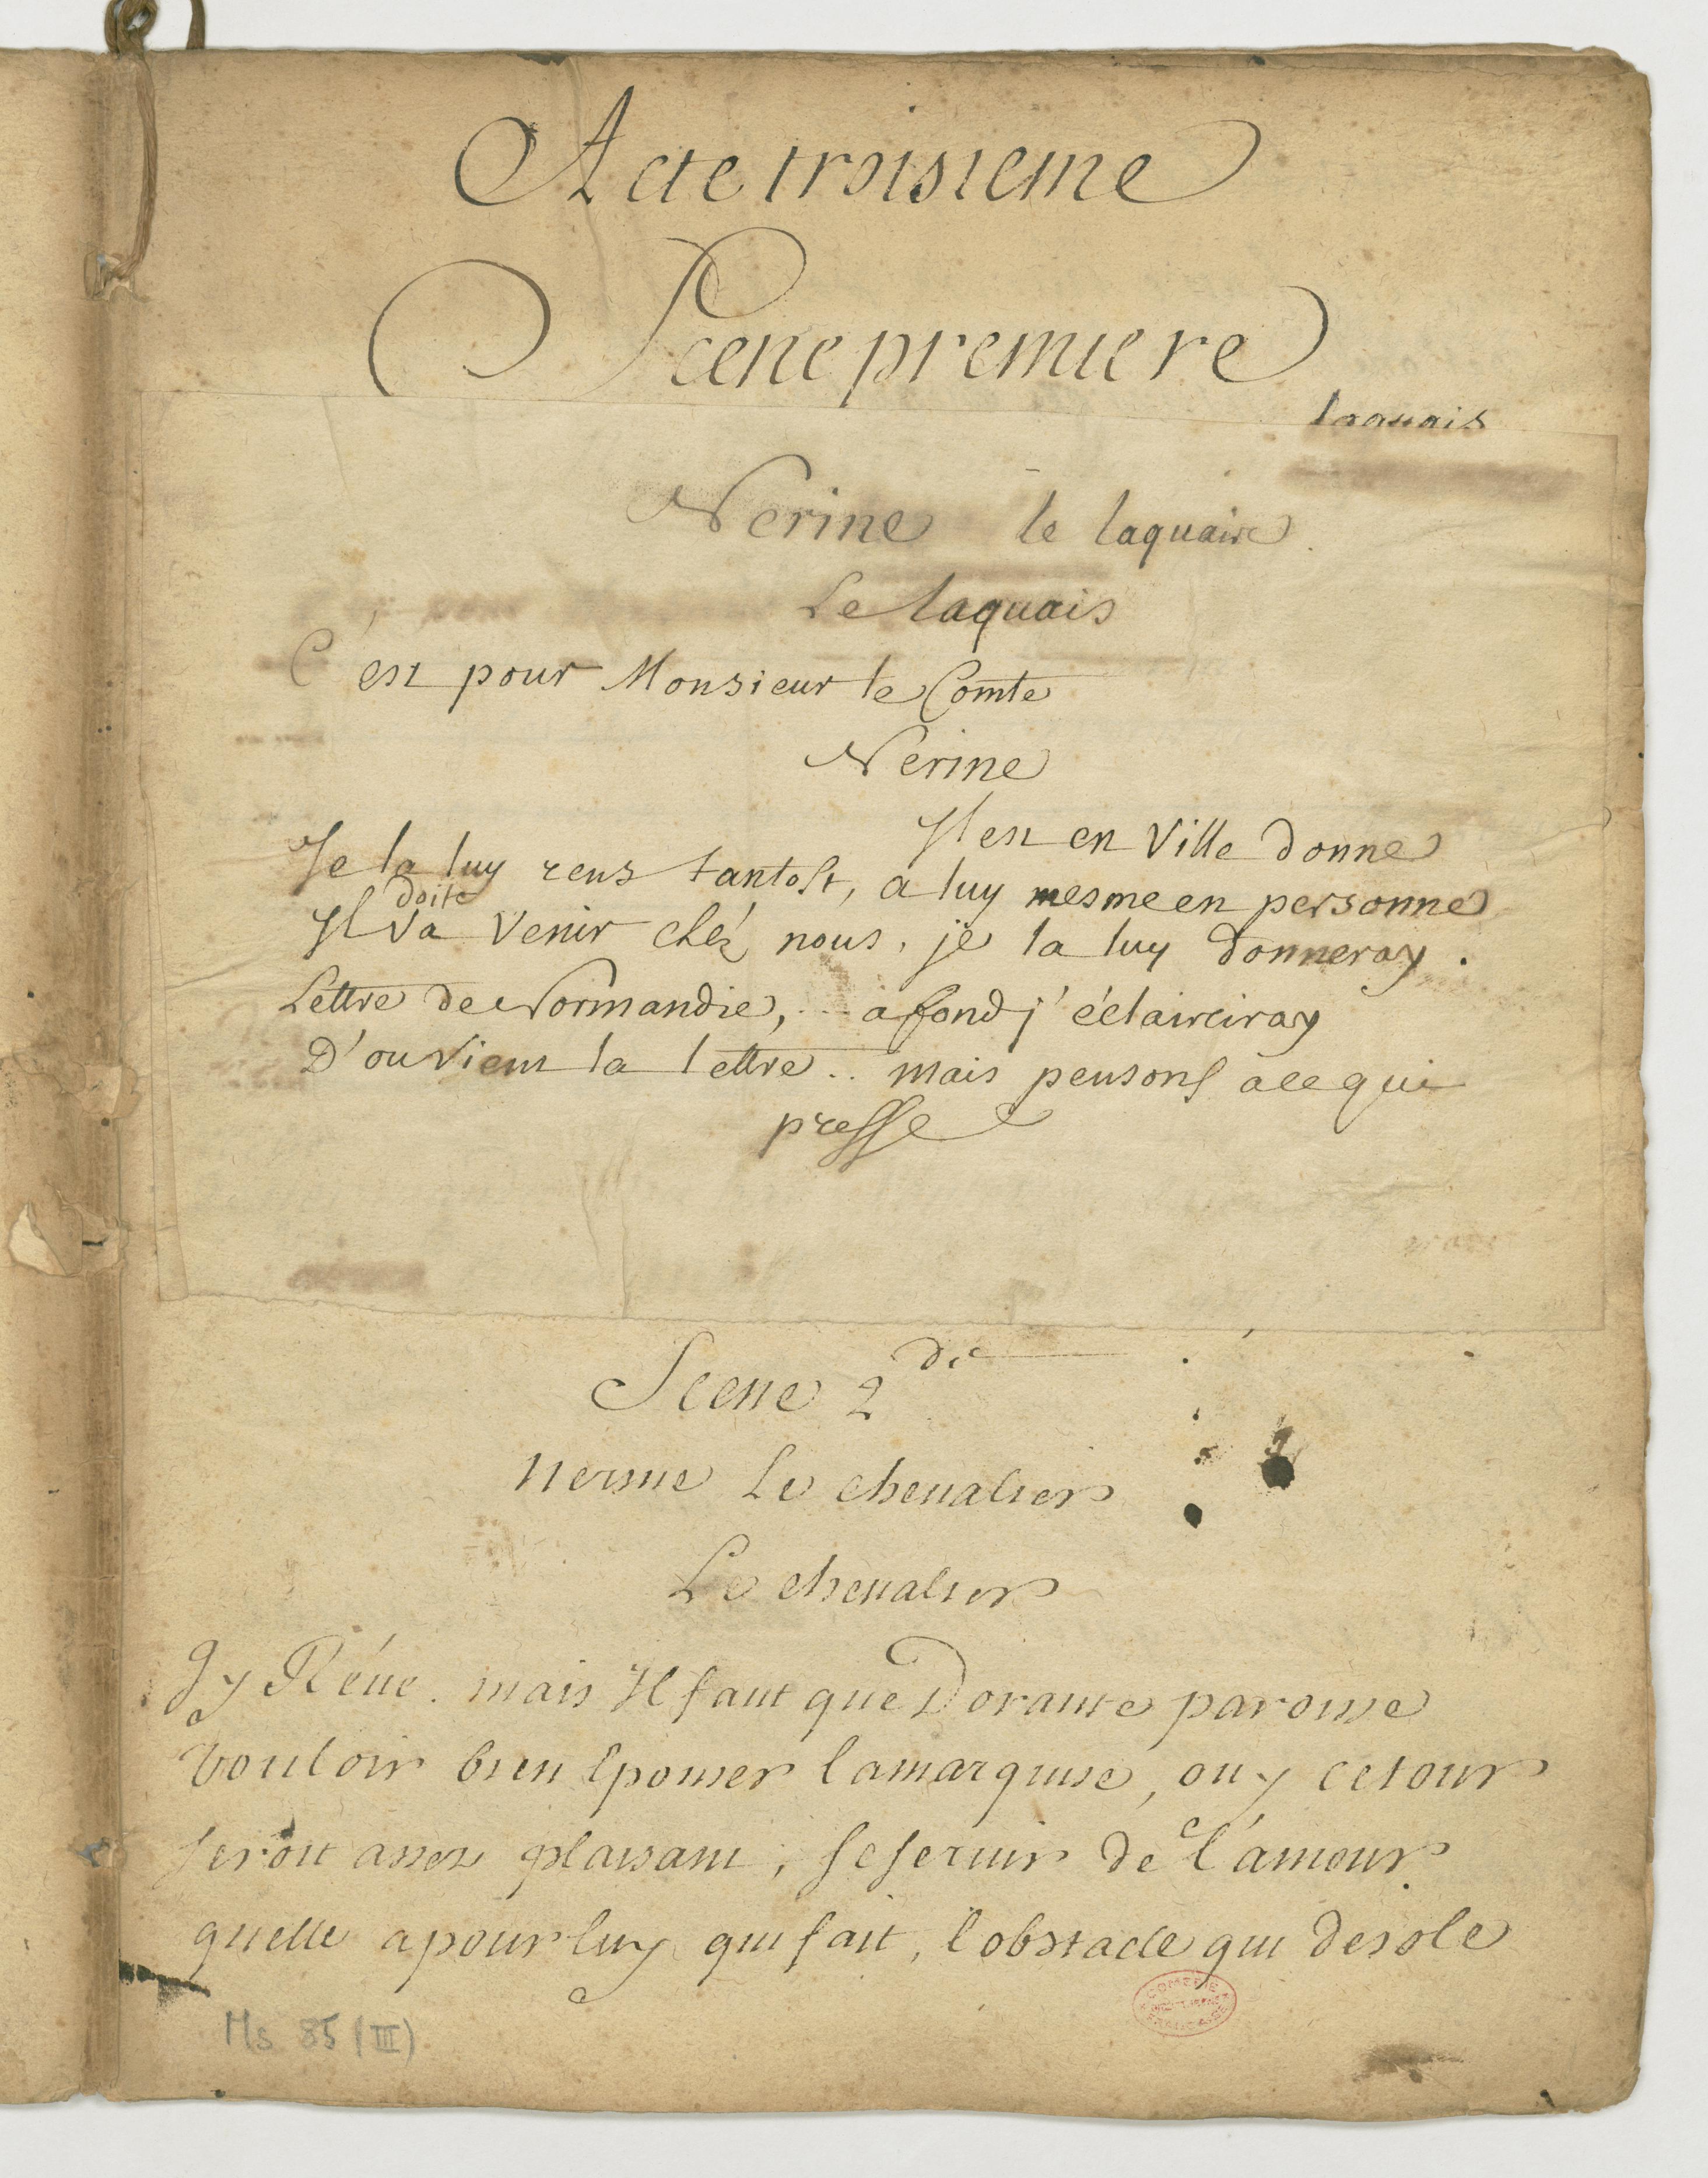 Acte troisieme
Scene premiere
laquais
Nerine le laquais
Le laquais
C'est pour Monsieur le Comte
Nerine
Il est en Ville donne
Je la luy rens tantost, a luy mesme en personne
doit
Il va venir chéz nous, je la luy donneray.
Lettre de Normandie, ... a fond j'éclairciray
D'ou vient la lettre .. mais pensons a ce qui
presse
Scene 2de
nerine Le chevalier
Le chevalier
J'y Réue. mais Il faut que Dorante paroisse
vouloir bien Epouser la marquise, ouy ce tour
seroit assez plaisant, se seruir de l'amour
quelle a pour luy qui fait, l'obstacle qui desole
Ms 85 (III)